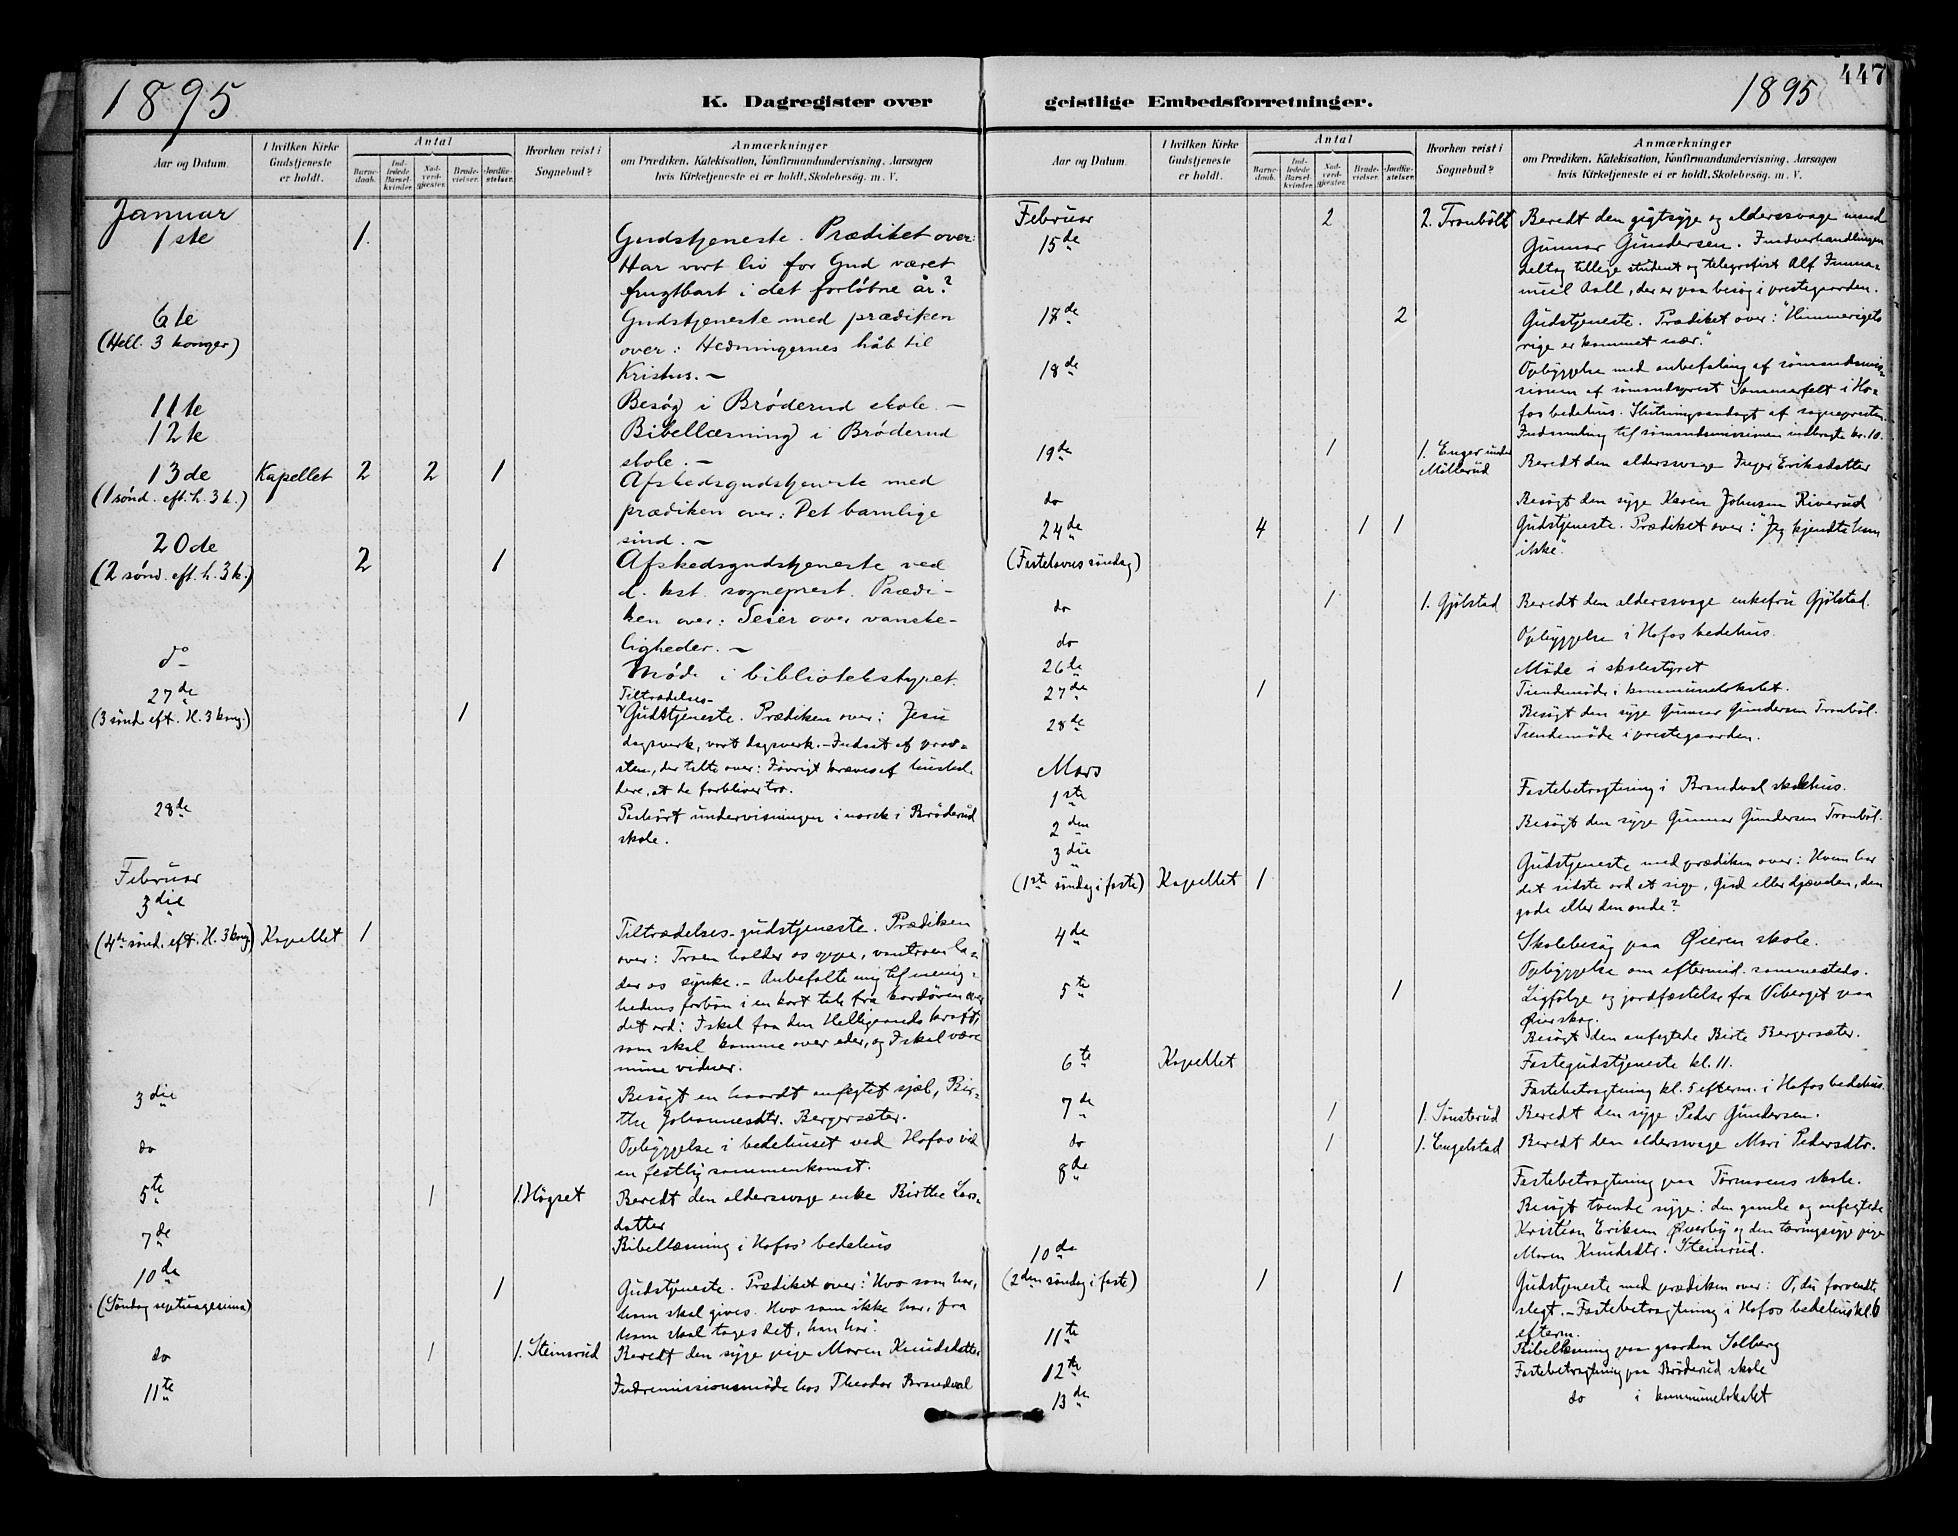 1895
K. Dagregister over
Antal
Aar og Datum.
I hvilken Kirke Gudstjeneste er holdt.
Barne-daab.
Ind-ledede Barsel-kvinder.
Nad-verd-gjester.
Brude-vielser.
Jordfæ-stelser.
Hvorhen reist i Sognebud?
Anmærkninger
om Prædiken, Katekisation, Konfirmandundervisning, Aarsagen
hvis Kirketjeneste ei er holdt, Skolebesøg, m. V.
Januar
1ste 1. Gudstjeneste. Prædiket over:
Har vort liv for Gud været
frugtbart i det forløbne år?
6te Gudstjeneste med prædiken
(Hell. 3 konger) over: Hedningernes håb til
Kristus. –
11te Besøg i Brøderud skole. –
12te Bibellæsning i Brøderud
skole. –
13de Kapellet 2 2 1 Afskedsgudstjeneste med
(1 sønd. eft. h. 3 k.) prædiken over: Det barnlige
sind. –
20de
(2 sønd. eft. h. 3 k.) 2 1 Afskedsgudstjeneste ved
d. kst. sogneprest. Prædi-
ken over: Seier over vanske-
ligheder. –
do Møde i bibliotekstyret.
27de Tiltrædelses-
(3 sønd eft. H. 3 kong.) 1 Gudstjeneste. Prædiken over: Jesu
dagsverk, vort dagsverk. – Indsat af prov-
sten, der talte over: Iøvrigt kræves af hushol-
dere, at de forbliver tro.
28de Påhørt undervisningen i norsk i Brøderud
skole.
Februar
3die
(4de sønd. eft. H. 3 kong) Kapellet 1 Tiltrædelses-gudstjeneste. Prædiken
over: Troen holder os oppe, vantroen la-
der os synke. – Anbefalte mig til menig-
hedens forbøn i en kort tale fra kordøren over
det ord: I skal faa den Helligaands kraft,
som skal komme over eder, og I skal være
mine vidner.
3die Besøgt en haardt anfegtet sjæl, Bir-
the Johannesdtr. Bergersæter.
do Opbyggelse i bedehuset ved Hofos ved
en festlig sammenkomst.
5te 1 1. Høgset Beredt den alderssvage enke Birthe Lars-
datter
7de Bibellæsning i Hofos' bedehus
10de
(Søndag septuagesima) 1 Gudstjeneste. Prædiket over: "Hvo som har,
ham skal gives. Hvo som ikke har, fra
ham skal tages det, han har".
do 1 1. Steinsrud Beredt den syge pige Maren Knudsdatter
11te Indremissionsmøde hos Theodor Brandval
447
1895
geistlige Embedsforretninger.
Antal
Aar og Datum.
I hvilken Kirke Gudstjeneste er holdt.
Barne-daab.
Ind-ledede Barsel-kvinder.
Nad-verd-gjester.
Brude-vielser.
Jordfæ-stelser.
Hvorhen reist i Sognebud?
Anmærkninger
om Prædiken, Katekisation, Konfirmandundervisning, Aarsagen
hvis Kirketjeneste ei er holdt, Skolebesøg, m. V.
Februar 2 2. Tronbøll Beredt den gigtsyge og alderssvage mand
15de Gunnar Gundersen. I nadverhandlingen
deltog tillige student og telegrafist Alf Imma-
nuel Aall, der er paa besøg i prestegaarden.
17de 2 Gudstjeneste. Prædiket over: "Himmeriges
rige er kommet nær."
18de Opbyggelse med anbefaling af sømandsmis-
sionen af sømandsprest Sommerfelt i Ho-
fos bedehus. Slutningsandagt af sognepresten.
Indsamling til sømandsmissionen indbragte kr. 10.
19de 1 1. Enger under Møllerud Beredt den alderssvage Inger Eriksdatter
do Besøgt den syge Karen Johnsen Riverud
24de 4 1 1 Gudstjeneste. Prædiket over: "Jeg kjendte ham
(Fastelavns søndag) ikke."
do 1 1. Gjølstad Beredt den alderssvage enkefru Gjølstad.
do Opbyggelse i Hofos bedehus.
26de Møde i skolestyret
27de 1 Tiendemøde i kommunelokalet.
Besøgt den syge Gunnar Gundersen Tronbøl.
28de Tiendemøde i prestegaarden.
Mars
1ste Fastebetragtning i Brandval skolehus.
2den Besøgt den syge Gunnar Gundersen Tronbøl.
3die
(1ste søndag i faste) Kapellet 1 Gudstjeneste med prædiken over: Hvem har
det sidste ord at sige, Gud eller djævelen, den
gode eller den onde?
4de Skolebesøg paa Øieren skole.
Opbyggelse om eftermid. sammesteds.
5te 1 Ligfølge og jordfæstelse fra Viberget paa
Øierskog.
Besøgt den anfegtede Birte Bergersæter.
6te Kapellet Fastegudstjeneste kl. 11.
Fastebetragtning kl. 5 efterm. i Hofos bedehus.
7de 1 1. Sønsterud Beredt den syge Peder Gundersen.
do 1 1. Engelstad Beredt den alderssvage Mari Pedersdtr.
8de Fastebetragtning paa Tørmoens skole.
Besøgt tvende syge: den gamle og anfegtede
Kristian Eriksen Øverby og den tæringssyge pige
10de Maren Knudsdtr. Steinsrud.
(2den søndag i faste) 1 1 Gudstjeneste med prædiken over: O, du forvendte
slegt. – Fastebetragtning i Hofos bedehus kl. 6
efterm.
11te Bibellæsning paa gaarden Solberg
12te Fastebetragtning paa Brøderud skole
13de do i kommunelokalet